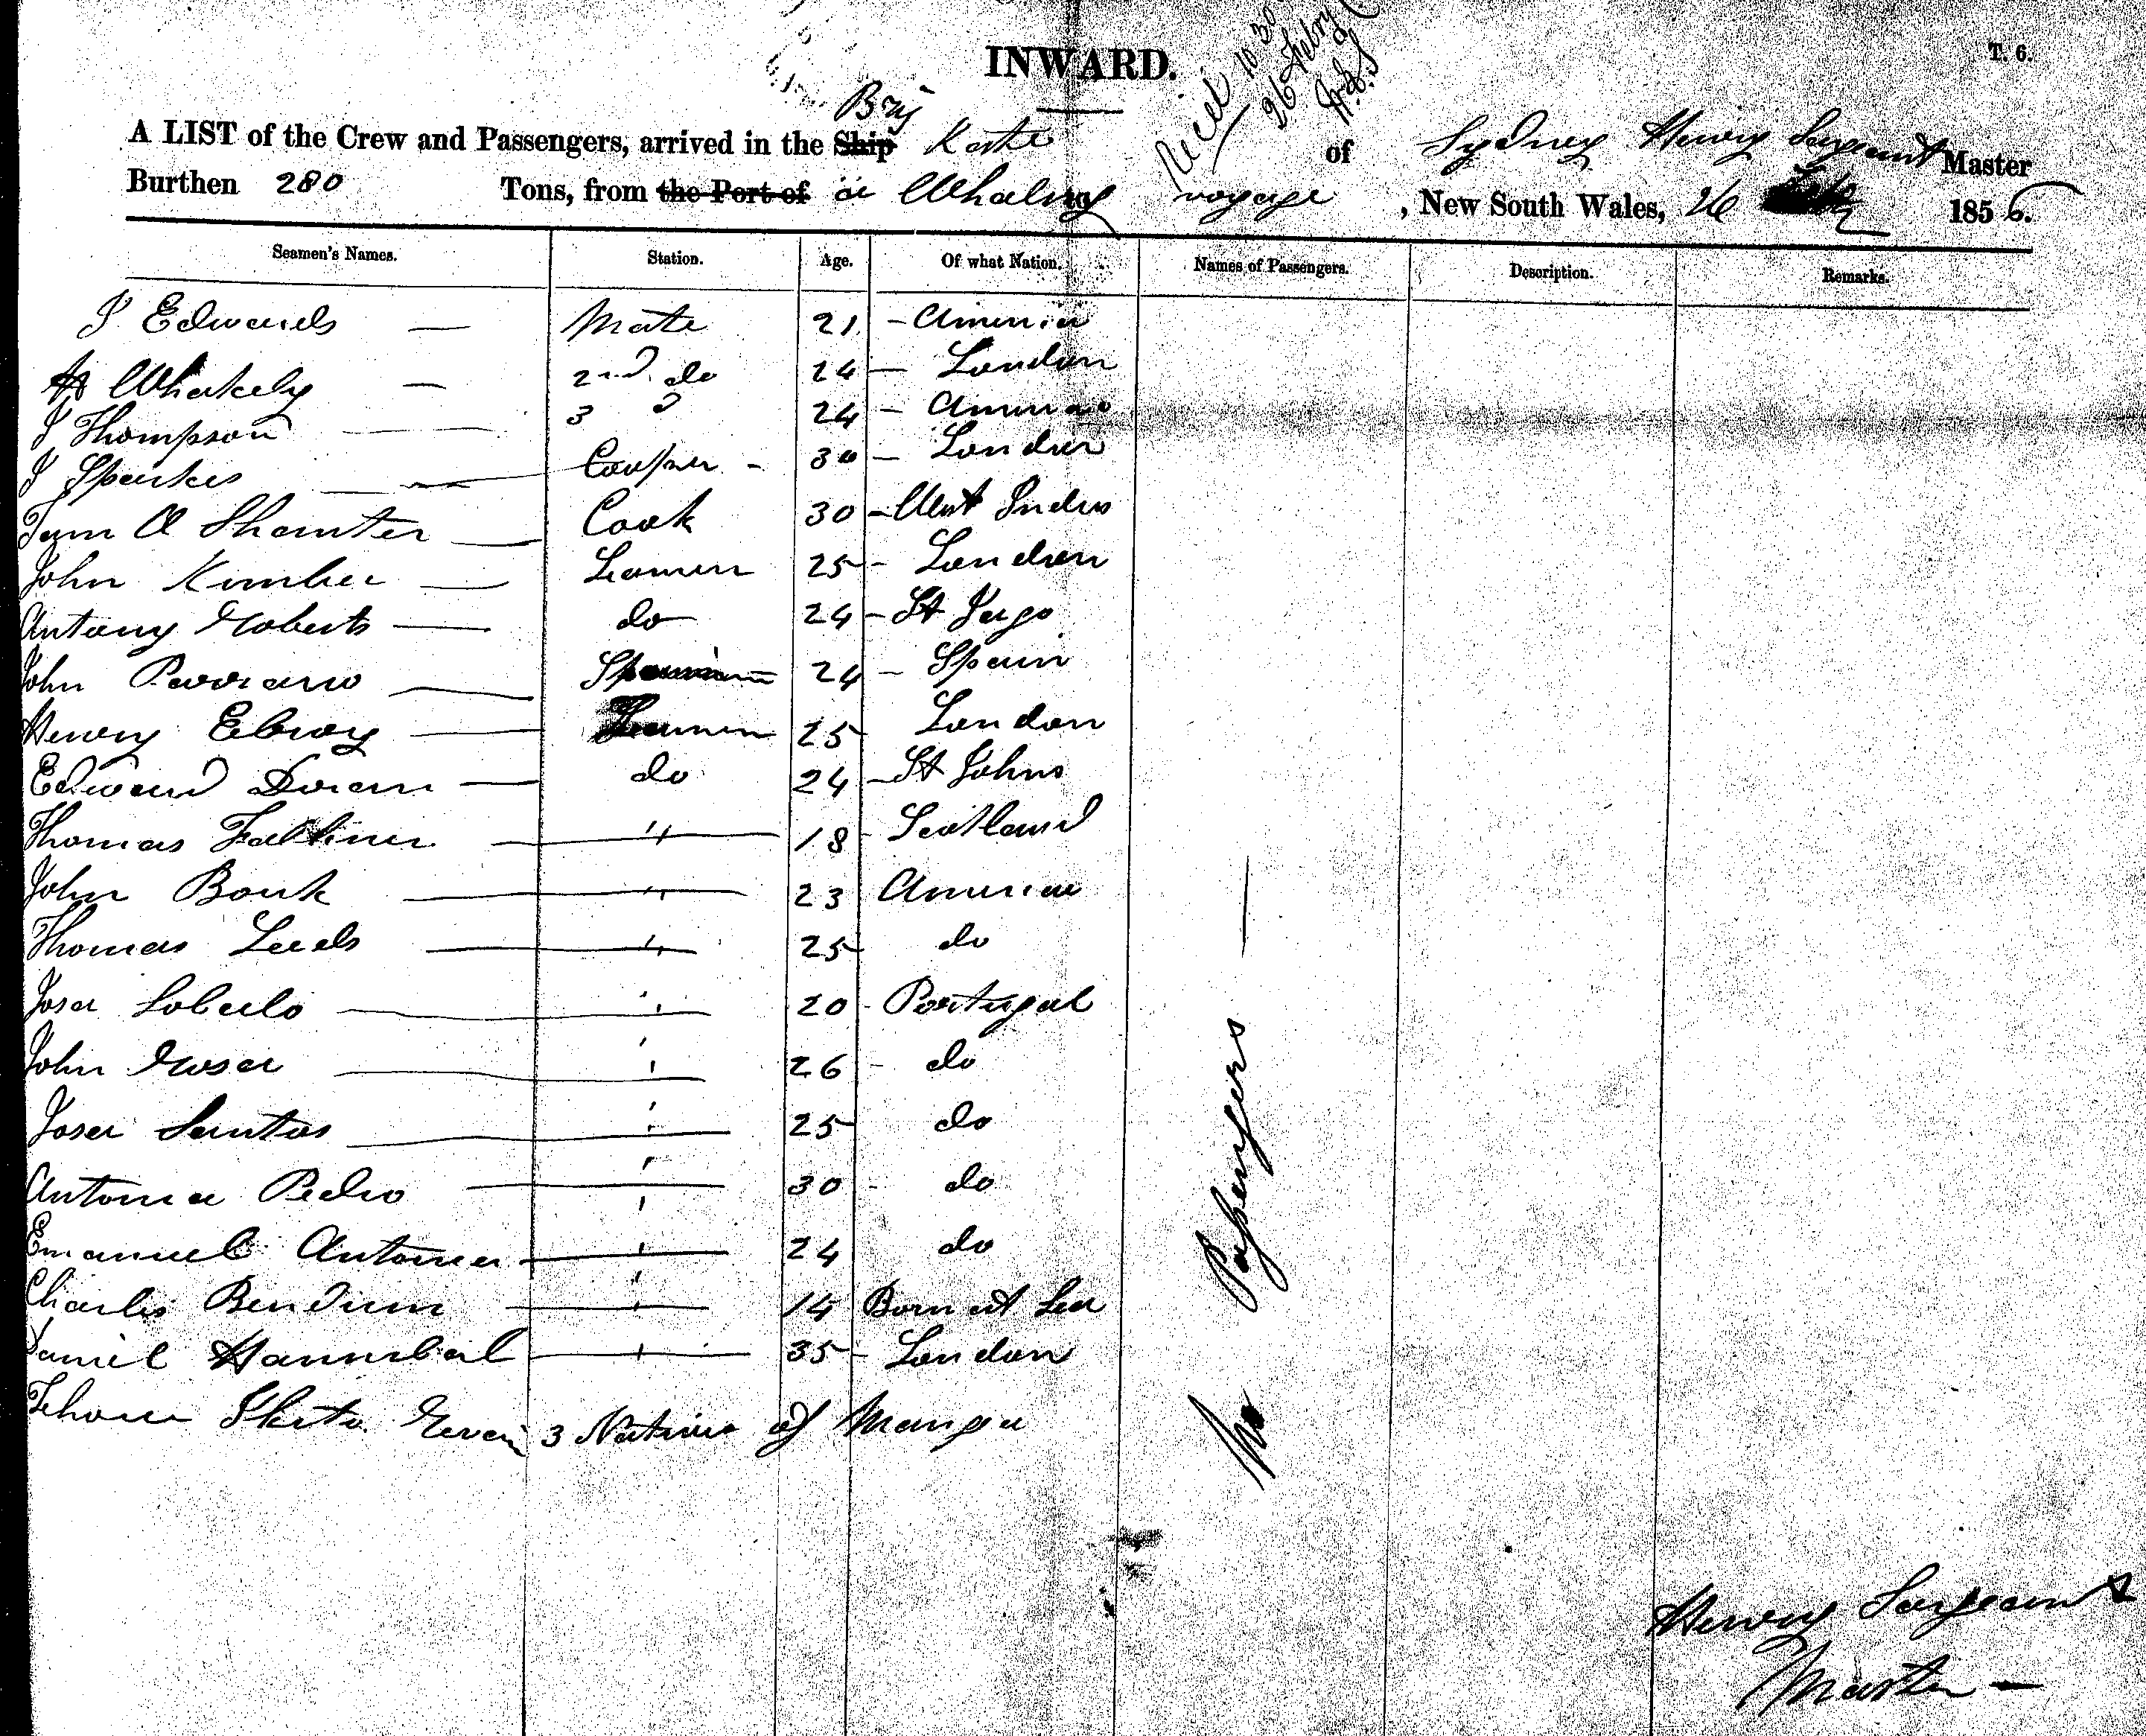 INWARD.
T. 6.
Recd 10 30
26 Febry
Brig
A LIST of the Crew and Passengers, arrived in the Ship Kate of Sydney Henry Sargeant Master
Burthen 280 Tons, from the Port of a Whaling voyage, New South Wales, 26 1856.
Seamen's Names. Station. Age. Of what Nation. Names of Passengers. Description. Remarks.
J Edwards — Mate 21 - America
Whakely — 2nd do 24 - London
J Thompson — 3 24 - America
J Sparkes — Cooper - 30 - London
Tom A Shanter — Cook 30 - West Indies
John Kimber — Seamen 25 - London
Antony Roberts — do 24 - St Jago
John — 24 - Spain
Henry — Seamen 25 London
Edward Doran — do 24 - St Johns
Thomas Falkiner — " 18 - Scotland
John Bonk — " 23 America
Thomas Leeds — " 25 do
Josea — " 20 - Portugal
John — " 26 - do
Josea Santos — " 25 do
Antonia Pedro — " 30 - do
Emanuel Antonia — " 24 do
Charles Bendum — " 14 Born at Sea
Daniel Hannibal — " 35 - London
3 Natives of Mangea
No Passengers —
Henry Sargeant
Master —